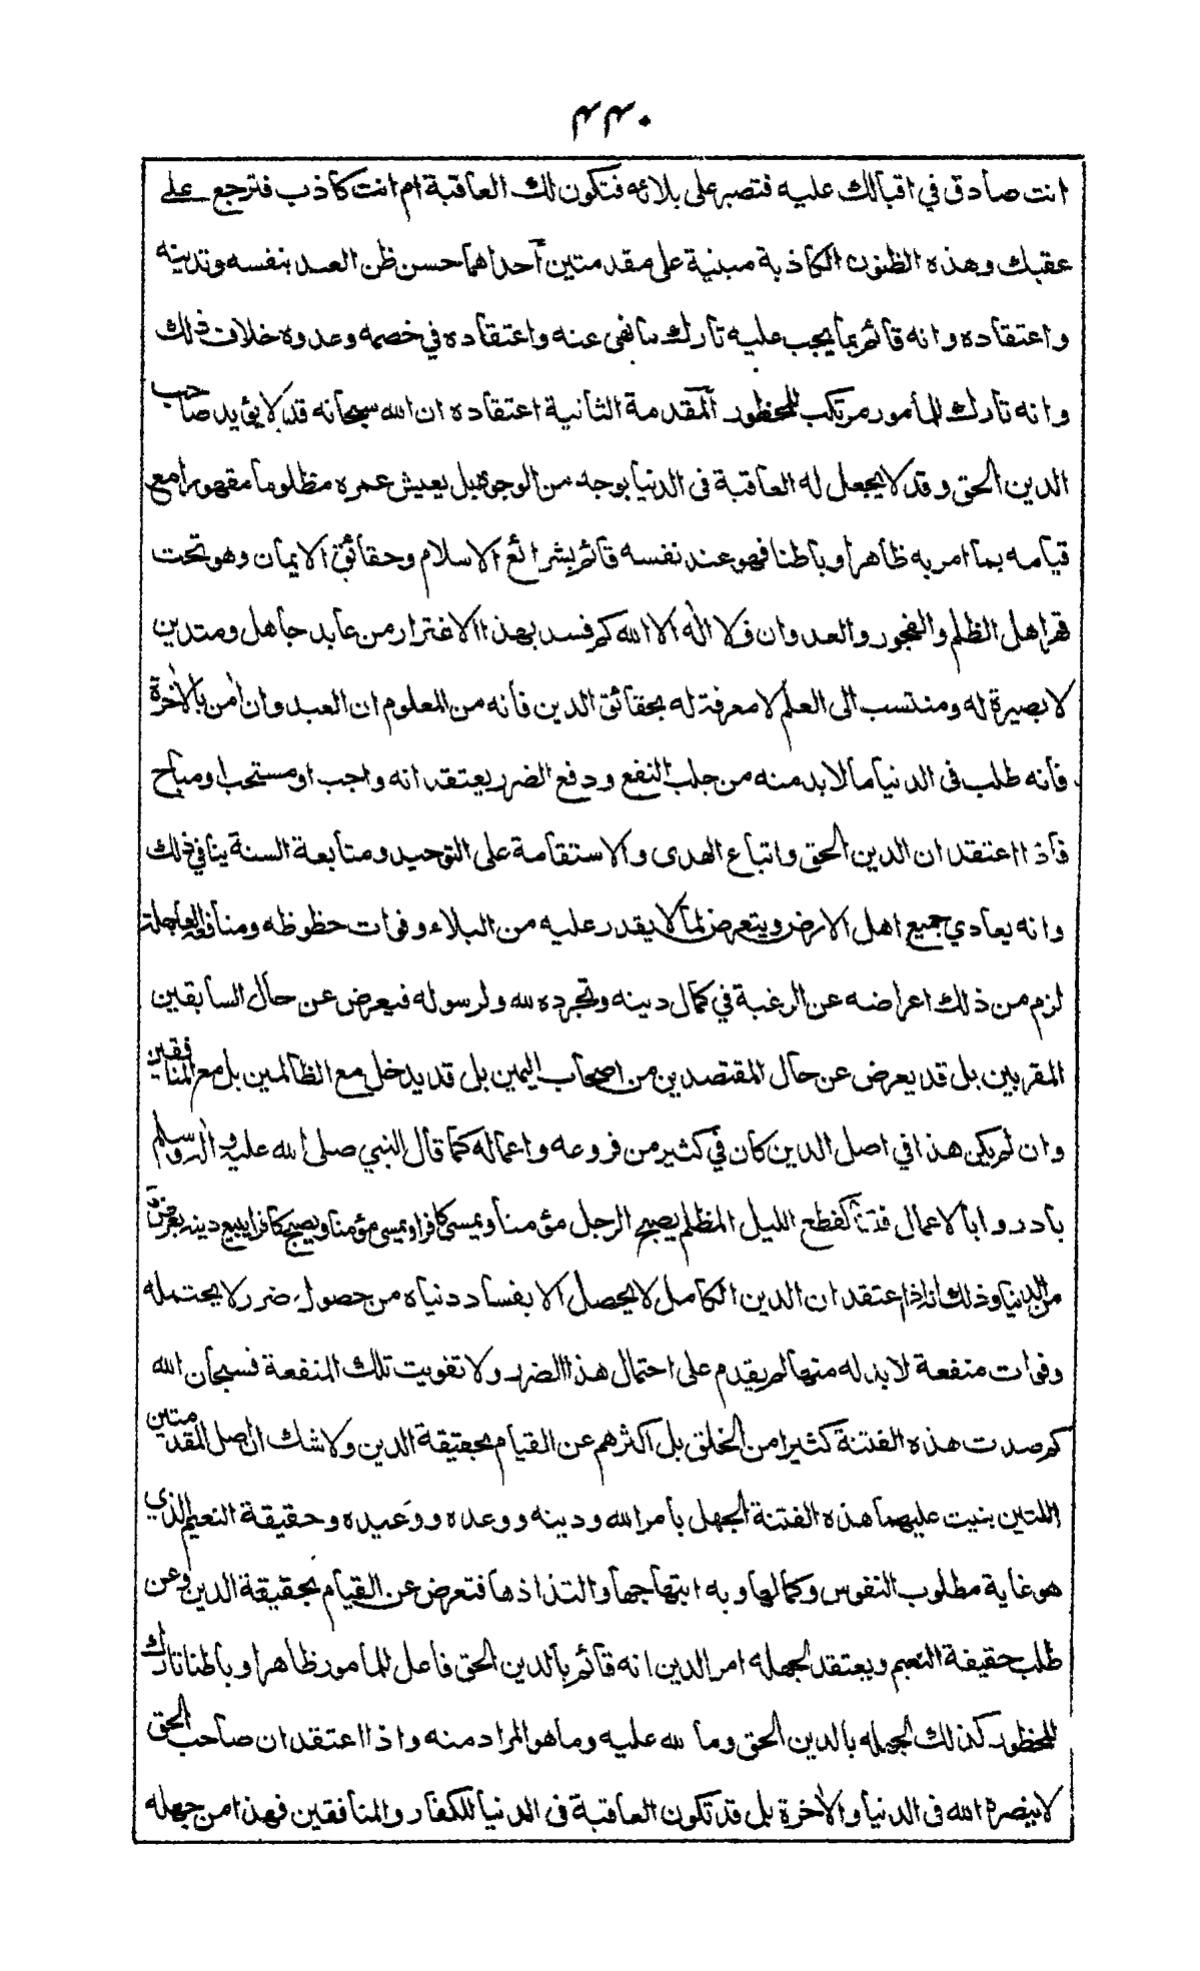 ٤٤٠
انت صادق في اقبالك عليه فتصبر على بلائه فتكون لك العاقبة ام انت كاذب فترجع على
عقبك وهذه الظنون الكاذبة مبنية على مقدمتين أحداهما حسن ظن العبد بنفسه وتدينه
واعتقاده وانه قائم بما يجب عليه تارك ما نهى عنه واعتقاده في خصمه وعدوه خلاف ذلك
وانه تارك للمأمور مرتكب للمحظور المقدمة الثانية اعتقاده ان الله سبحانه قد لا يؤيد صاحب
الدين الحق وقد لا يجعل له العاقبة فى الدنيا بوجه من الوجوه بل يعيش عمره مظلوما مقهورا مع
قيامه بما امر به ظاهرا وباطنا فهو عند نفسه قائم بشرائع الاسلام وحقائق الايمان وهو تحت
قهر اهل الظلم والفجور والعدوان فلا اله الا الله كم فسد بهذا الاغترار من عابد جاهل ومتدين
لا بصيرة له ومنتسب الى العلم لا معرفة له بحقائق الدين فأنه من المعلوم ان العبد وان أمن بالأخرة
فأنه طلب فى الدنيا ما لا بد منه من جلب النفع ودفع الضرر يعتقد انه واجب او مستحب او مباح
فأذا اعتقد ان الدين الحق واتباع الهدى والاستقامة على التوحيد ومتابعة السنة ينافي ذلك
وانه يعادي جميع اهل الارض ويتعرض لما لا يقدر عليه من البلاء وفوات حظوظه ومنافعه العاجلة
لزم من ذلك اعراضه عن الرغبة في كمال دينه وتجرده لله ولرسوله فيعرض عن حال السابقين
المقربين بل قد يعرض عن حال المقتصدين من اصحاب اليمين بل قد يدخل مع الظالمين بل مع المنافقين
وان لم يكن هذا في اصل الدين كان في كثير من فروعه واعماله كما قال النبي صلى الله عليه واله وسلم
بادروا بالاعمال فتنا كقطع الليل المظلم يصبح الرجل مؤمنا ويمسى كافرا ويمسى مؤمنا ويصبح كافرا يبيع دينه بعرض
من الدنيا وذلك انه اذا اعتقد ان الدين الكامل لا يحصل الا بفساد دنياه من حصول ضرر لا يحتمله
وفوات منفعة لا بد له منها لم يقدم على احتمال هذا الضرر ولا تفويت تلك المنفعة فسبحان الله
كم صدت هذه الفتنة كثيرا من الخلق بل اكثرهم عن القيام بحقيقة الدين ولا شك ان اصل المقدمتين
اللتين بنيت عليهما هذه الفتنة الجهل بأمر الله ودينه ووعده ووعيده وحقيقة النعيم الذي
هو غاية مطلوب النفوس وكمالها وبه ابتهاجها والتذاذها فتعرض عن القيام بحقيقة الدين وعن
طلب حقيقة النعيم ويعتقد لجهله امر الدين انه قائم بالدين الحق فاعل للمأمور ظاهرا وباطنا تارك
للمحظور كذلك لجهله بالدين الحق وما لله عليه وما هو المراد منه واذا اعتقد ان صاحب الحق
لا ينصره الله فى الدنيا والأخرة بل قد تكون العاقبة فى الدنيا للكفار والمنافقين فهذا من جهله